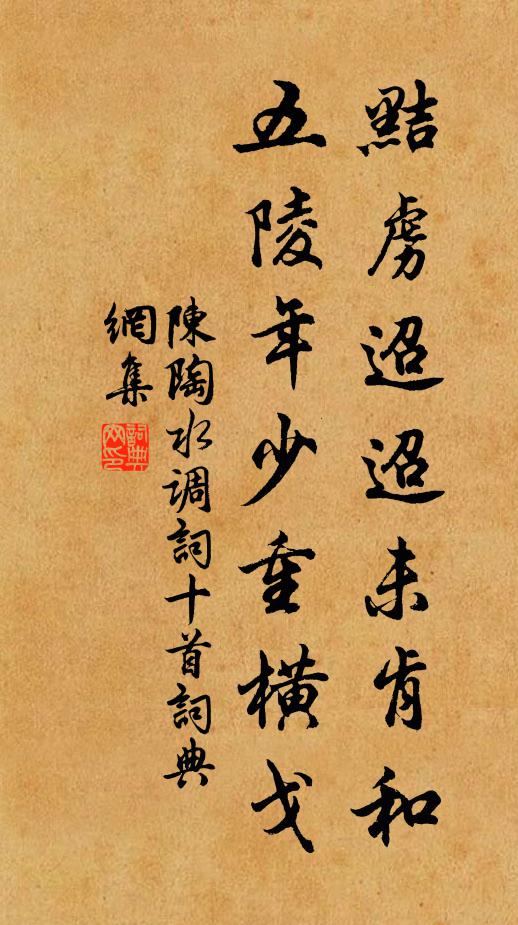 黠虜迢迢未肯和
五陵年少重橫戈
陳陶水调詞十首詞典
網集
詞典
网印